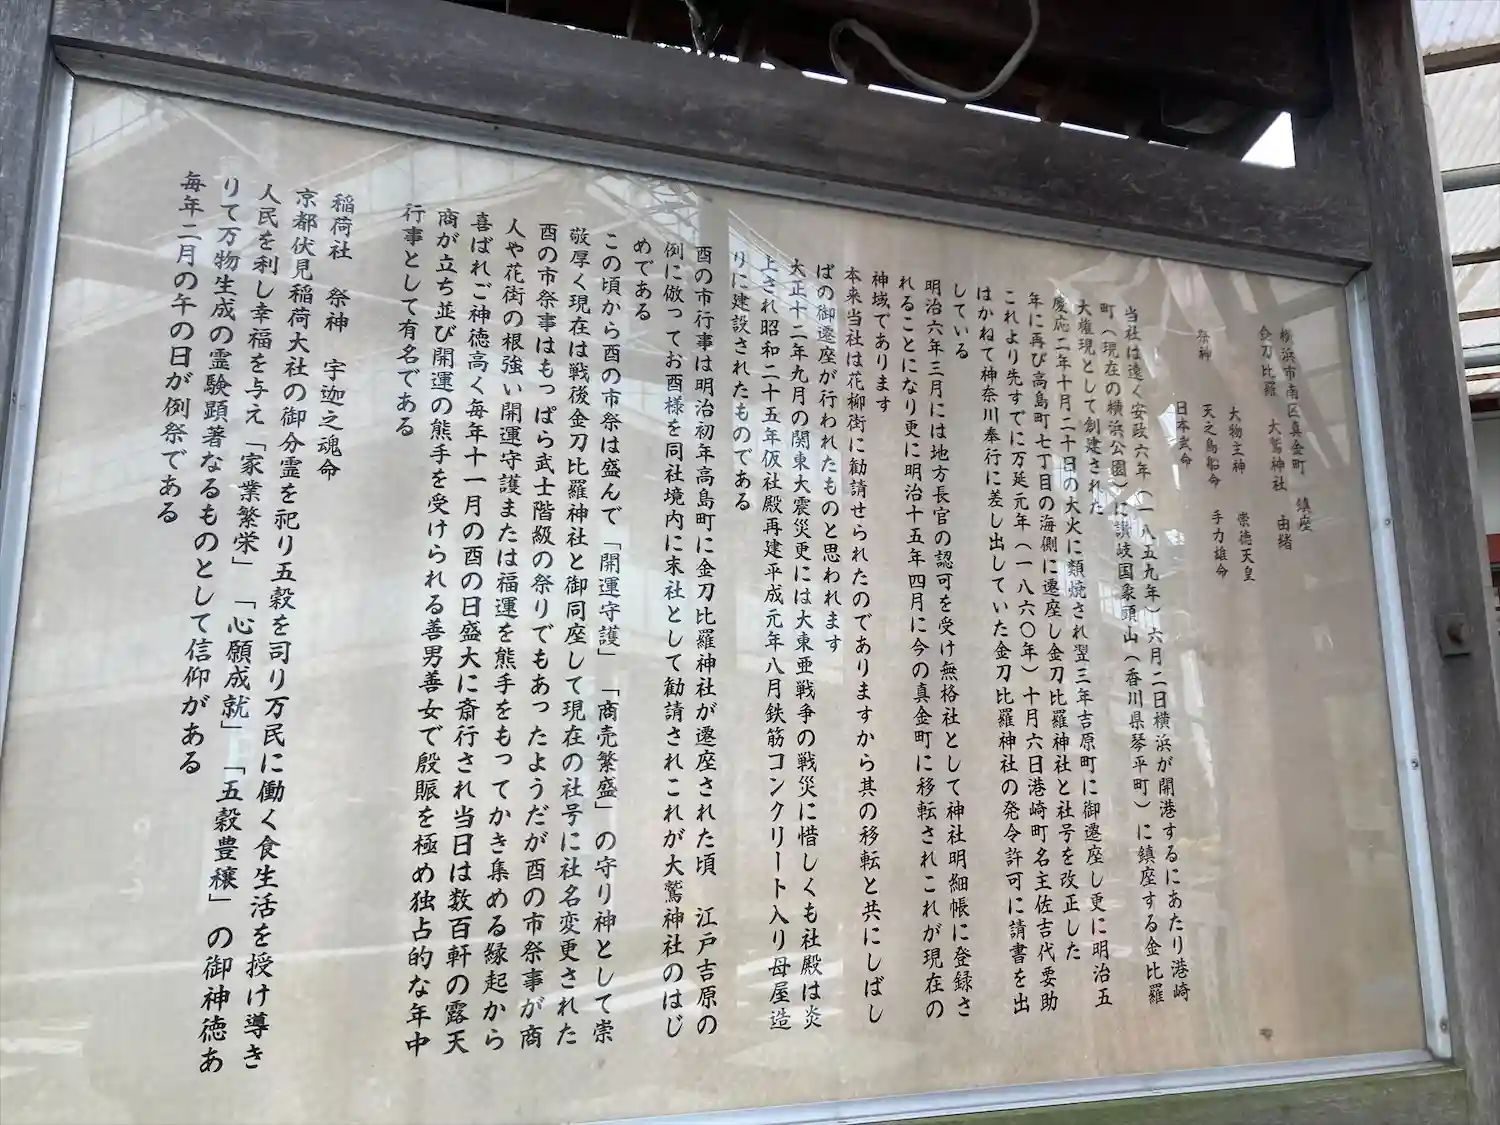 横浜市南区真金町　鎮座
金刀比羅　大鷲神社　由緒
祭神　大物主神　崇徳天皇
天之鳥船命　手力雄命
日本武命
当社は遠く安政六年（一八五九年）六月二日横浜が開港するにあたり港崎
町（現在の横浜公園）に讃岐国象頭山（香川県琴平町）に鎮座する金比羅
大権現として創建された
慶応二年十月二十日の大火に類焼され翌三年吉原町に御遷座し更に明治五
年に再び高島町七丁目の海側に遷座し金刀比羅神社と社号を改正した
これより先すでに万延元年（一八六〇年）十月六日港崎町名主佐吉代要助
はかねて神奈川奉行に差し出していた金刀比羅神社の発令許可に請書を出
している
明治六年三月には地方長官の認可を受け無格社として神社明細帳に登録さ
れることになり更に明治十五年四月に今の真金町に移転されこれが現在の
神域であります
本来当社は花柳街に勧請せられたのでありますから其の移転と共にしばし
ばの御遷座が行われたものと思われます
大正十二年九月の関東大震災更には大東亜戦争の戦災に惜しくも社殿は炎
上され昭和二十五年仮社殿再建平成元年八月鉄筋コンクリート入り母屋造
りに建設されたものである
酉の市行事は明治初年高島町に金刀比羅神社が遷座された頃　江戸吉原の
例に倣ってお酉様を同社境内に末社として勧請されこれが大鷲神社のはじ
めである
この頃から酉の市祭は盛んで「開運守護」「商売繁盛」の守り神として崇
敬厚く現在は戦後金刀比羅神社と御同座して現在の社号に社名変更された
酉の市祭事はもっぱら武士階級の祭りでもあったようだが酉の市祭事が商
人や花街の根強い開運守護または福運を熊手をもってかき集める縁起から
喜ばれご神徳高く毎年十一月の酉の日盛大に斎行され当日は数百軒の露天
商が立ち並び開運の熊手を受けられる善男善女で殷賑を極め独占的な年中
行事として有名である
稲荷社　祭神　宇迦之魂命
京都伏見稲荷大社の御分霊を祀り五穀を司り万民に働く食生活を授け導き
人民を利し幸福を与え「家業繁栄」「心願成就」「五穀豊穣」の御神徳あ
りて万物生成の霊験顕著なるものとして信仰がある
毎年二月の午の日が例祭である